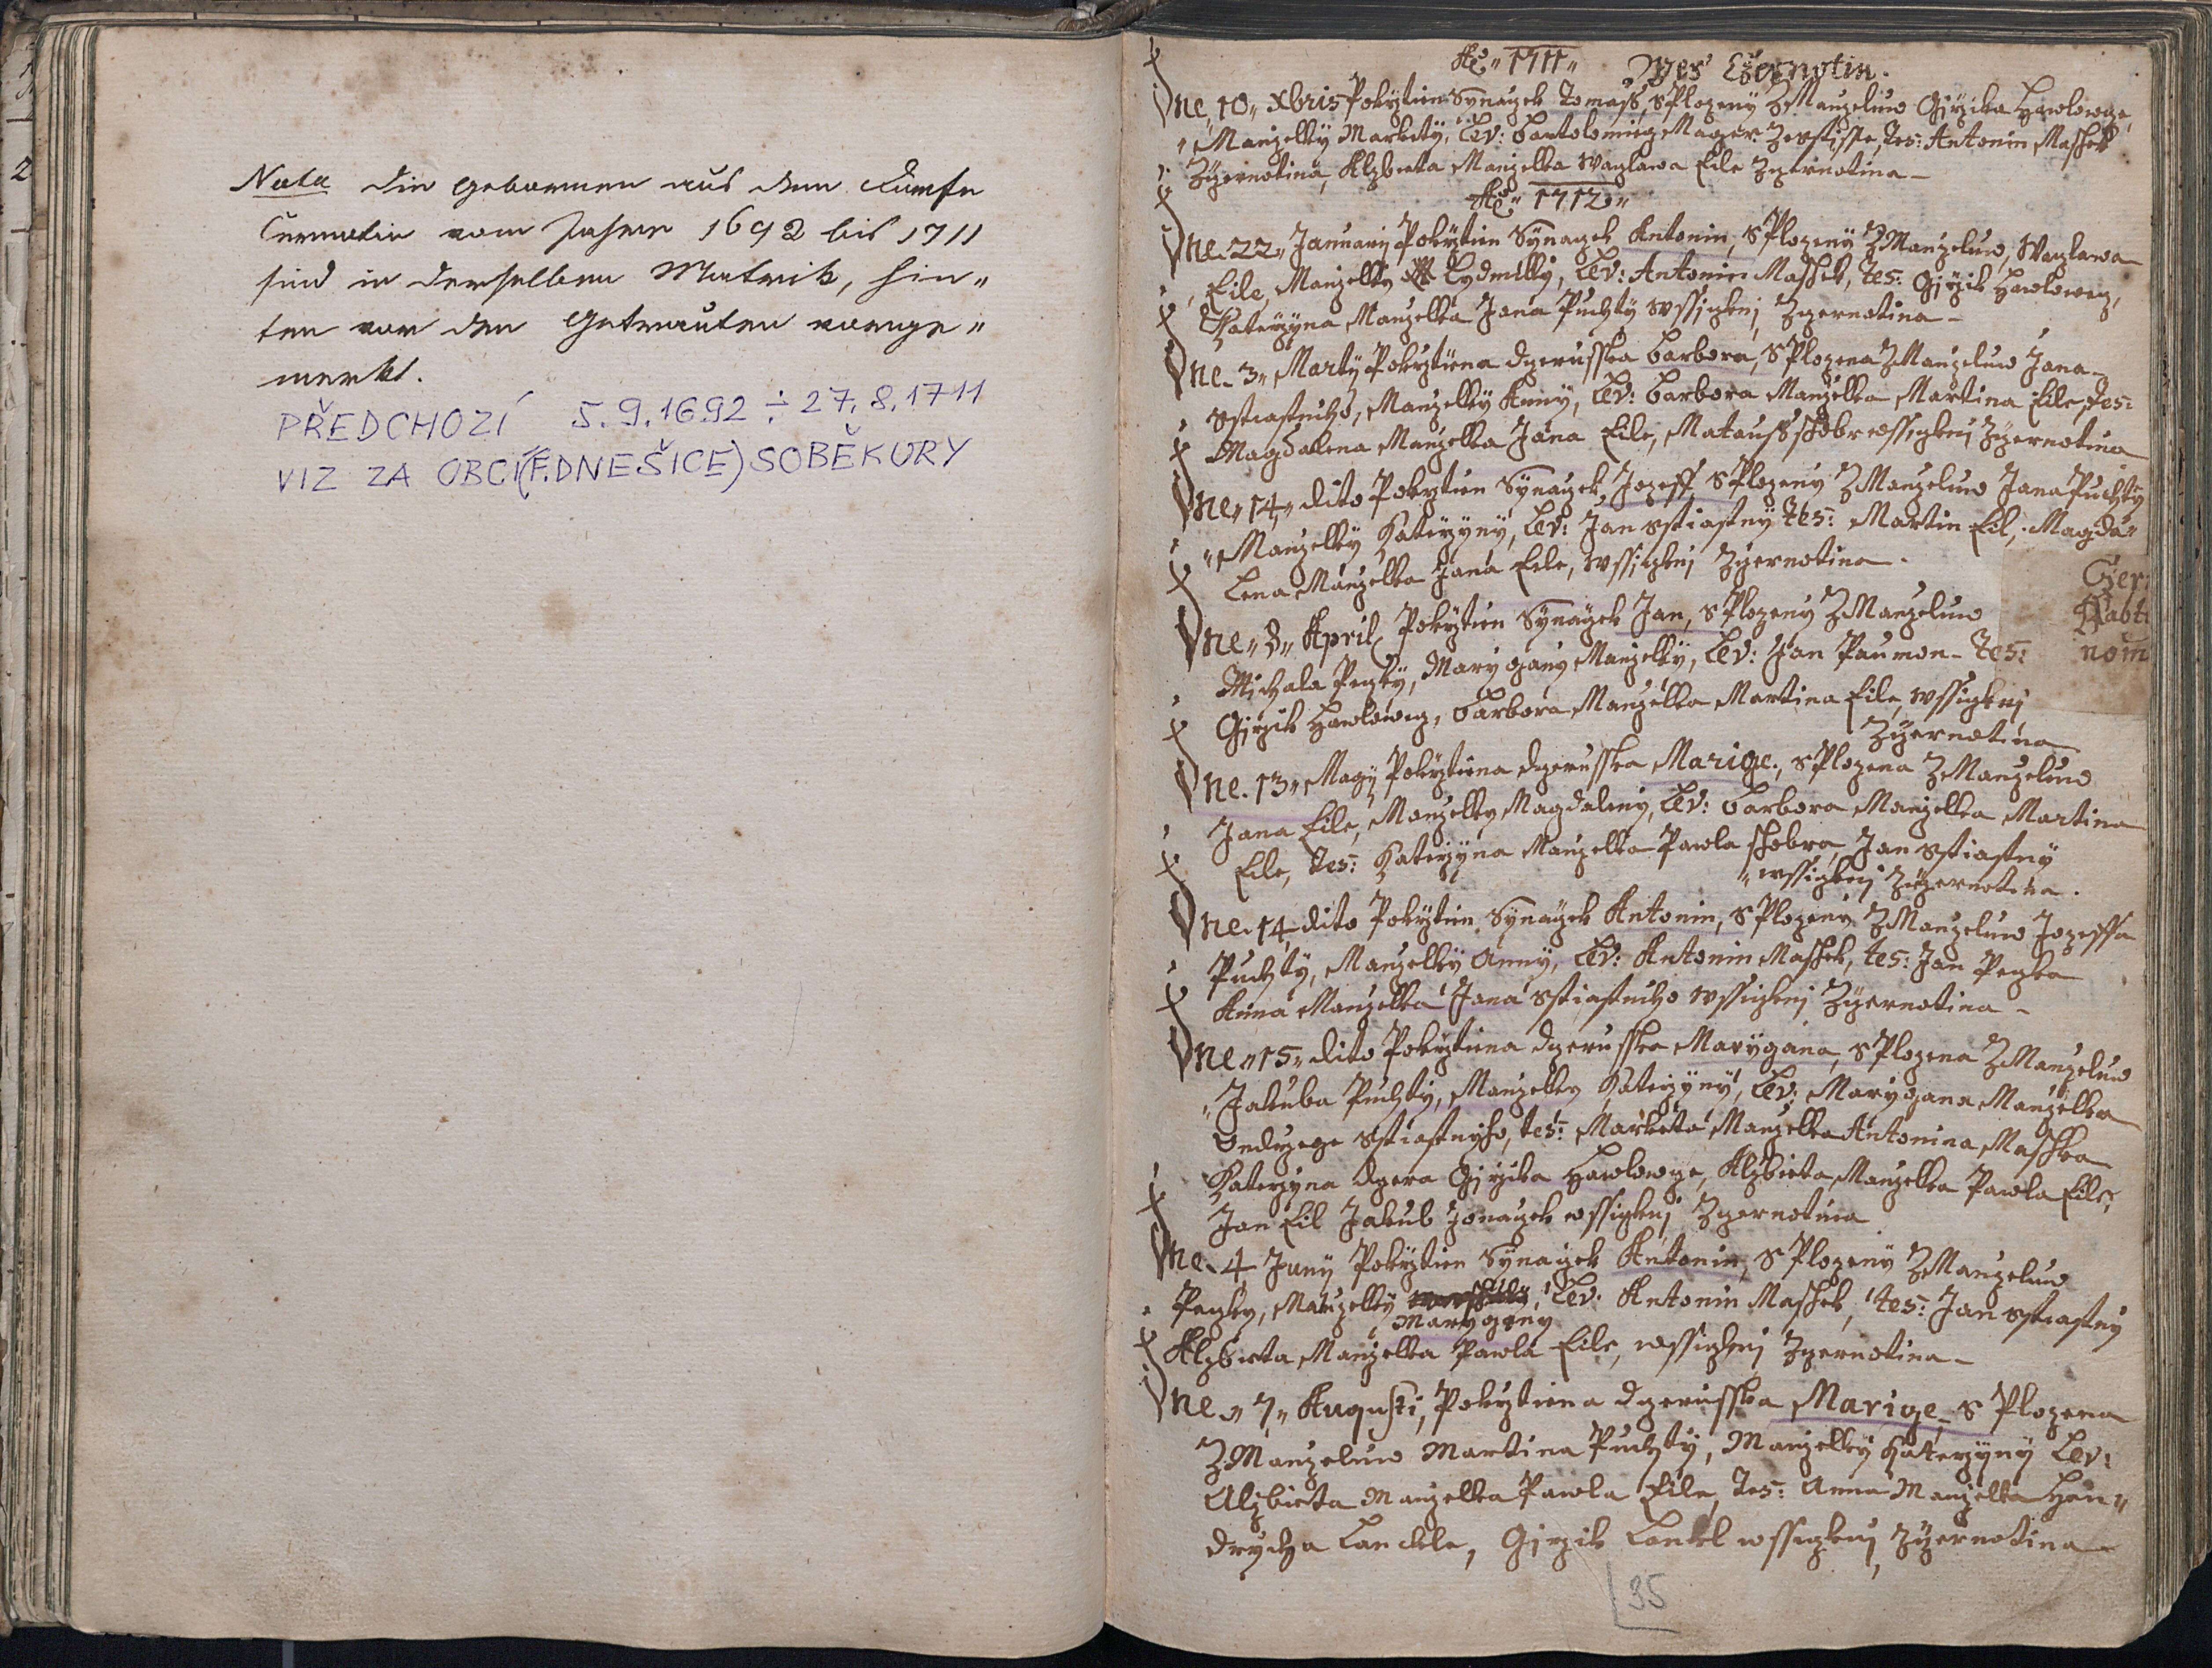 Nota die Gebornen aus dem Dorfe
Černotin vom Jahre 1692 bis 1711
sind in derselben Matrik, hin„
ten vor den Getrauten vorge„
merkt.
PŘEDCHOZÍ 5.9.1692 ÷ 27.8.1711
VIZ ZA OBCÍ (F. DNEŠICE) SOBĚKURY
Ao „1711„ Wes Czernotin.
Dne „10„ Xbris Pokrztien Synaczek Tomass, S Plozeny Z Manzeluw Girzika Hawlowge,
Manzelky Markety, Lev: Bartolomieg Mager Zerstisste, Tes: Antonin Maschek
Zczernotina, Alzbieta Manzelka Waczlawa Eile Zczernotina –
Ao „1712„
Dne 22„ January Pokrztien Synaczek Antonin, S Plozeny Z Manzeluw, Waczlawa
Eile, Manzelky Lydmilly, Lev: Antonin Maschek, Tes: Girzik Hawloweg,
Katerzyna Manzelka Jana Puchty wssiczkni Zczernotina –
Dne 3„ Marty Pokrztiena dczerusska Barbora, S Plozena Z Manzeluw Jana
Sstiastneho, Manzelky Anny, Lev: Barbora Manzelka Martina Eile, Tes:
Magdalena Manzelka Jana Eile, Matauss Schobr wssiczkni Zczernotina
Dne „14„ dito Pokrztien Synaczek Jozeff S Plozeny Z Manzeluw Jana Puchty
„Manzelky Katerzyny, Lev: Jan Sstiastny Tes: Martin Eil, Magda„
Lena Manzelka Jana Eile, wssiczkni Zczernotina.
Dne „8„ April Pokrztien Synaczek Jan, S Plozeny Z Manzeluw
Michala Pegky, Marygany Manzelky, Lev: Jan Paumon – Tes:
Girzik Hawloweg, Barbora Manzelka Martina Eile, wssiczkni
Zczernotina
Dne 13„ Magy Pokrztiena dczerusska Marige, S Plozena Z Manzeluw
Jana Eile, Manzelky Magdaleny, Lev: Barbora Manzelka Martina
Eile, Tes: Katerzyna Manzelka Pawla Schobra, Jan Sstiastny
„wssiczkni Zczernotina.
Dne 14 dito Pokrztien Synaczek Antonin, S Plozeny Z Manzeluw Jozeffa
Puchty, Manzelky Anny, Lev: Antonin Maschek, tes: Jan Pegka
Anna Manzelka Jana Sstiastneho wssiczkni Zczernotina –
Dne „15„ dito Pokrztiena dczerusska Marygana, S Plozena Z Manzeluw
„Jakuba Puchty, Manzelky Katerzyny, Lev: Marygana Manzelka
Ondrzege Sstiastnyho, tes: Marketa Manzelka Antonina Maschka
Katerzyna dczera Girzika Hawlowge, Alzbieta Manzelka Pawla Eile,
Jan Eil Jakub Jonaczek wssiczkni Zczernotina
Dne 4 Juny Pokrztien Synaczek Antonin, S Plozeny Z Manzeluw
Pegky, Manzelky Lev: Antonin Maschek, tes: Jan Sstiastny
Marygany
Alzbieta Manzelka Pawla Eile, wssiczkni Zczernotina –
Dne „7„ Augusti, Pokrztiena dczerusska Marige, S Plozena
Z Manzeluw Martina Puchty, Manzelky Katerzyny Lev:
Alzbieta Manzelka Pawla Eile, Tes: Anna Manzelka Hen„
drycha Lanckle, Girzik Lenkl wssiczkni Zczernotina
Czer
nom
35